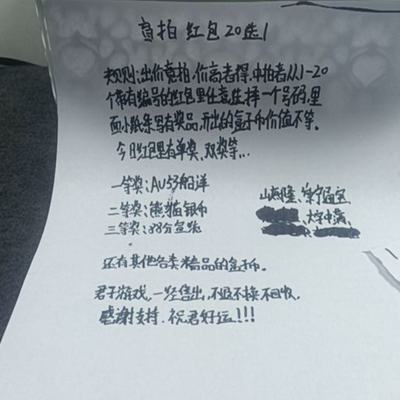 竞拍红包20选1
规则:出价竞拍,价高者得,中拍者从1-20
个带有编号的红包里任意选择一个号码,里
面小纸条写有奖品,开出的盒子币价值不等。
今日红包里有单奖、双奖等...
一等奖:AU53船洋
二等奖:熊猫银币
三等奖:88分
还有其他各类精品的盒子币。
君子游戏,一经售出,不退不换不回收。
感谢支持.祝君好运!!!